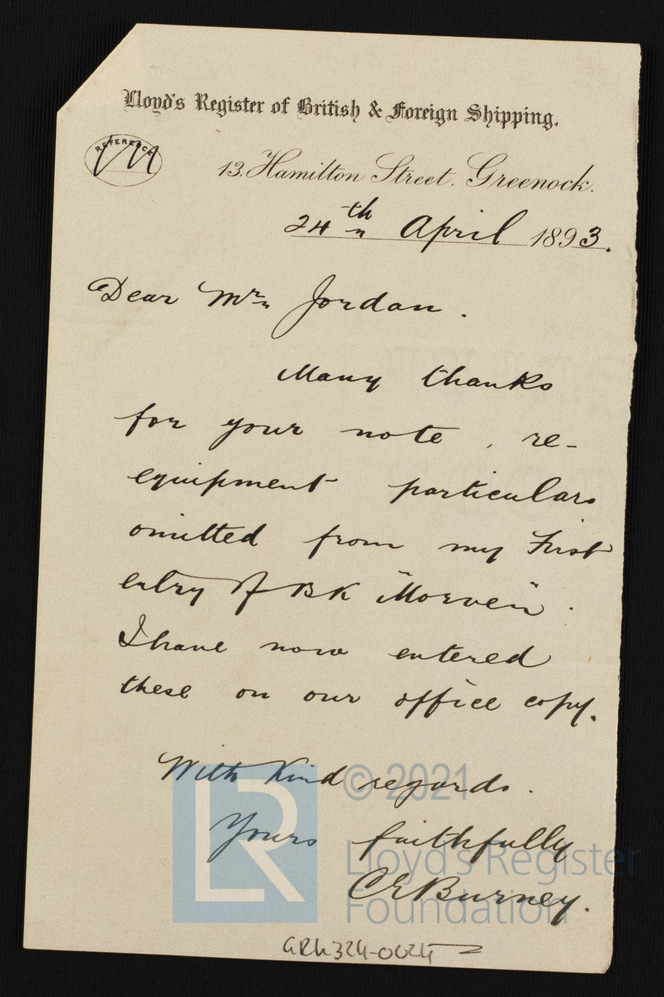 Lloyd's Register of British & Foreign Shipping.
REFERENCE
13, Hamilton Street, Greenock.
24th April 1893.
Dear Mr Jordan.
Many thanks
for your note, re-
equipment particulars
omitted from my First
entry of BK "Morven".
I have now entered
these on our office copy.
With Kind regards.
Yours faithfully
CEBurney.
LR
© 2021
Lloyd's Register
Foundation